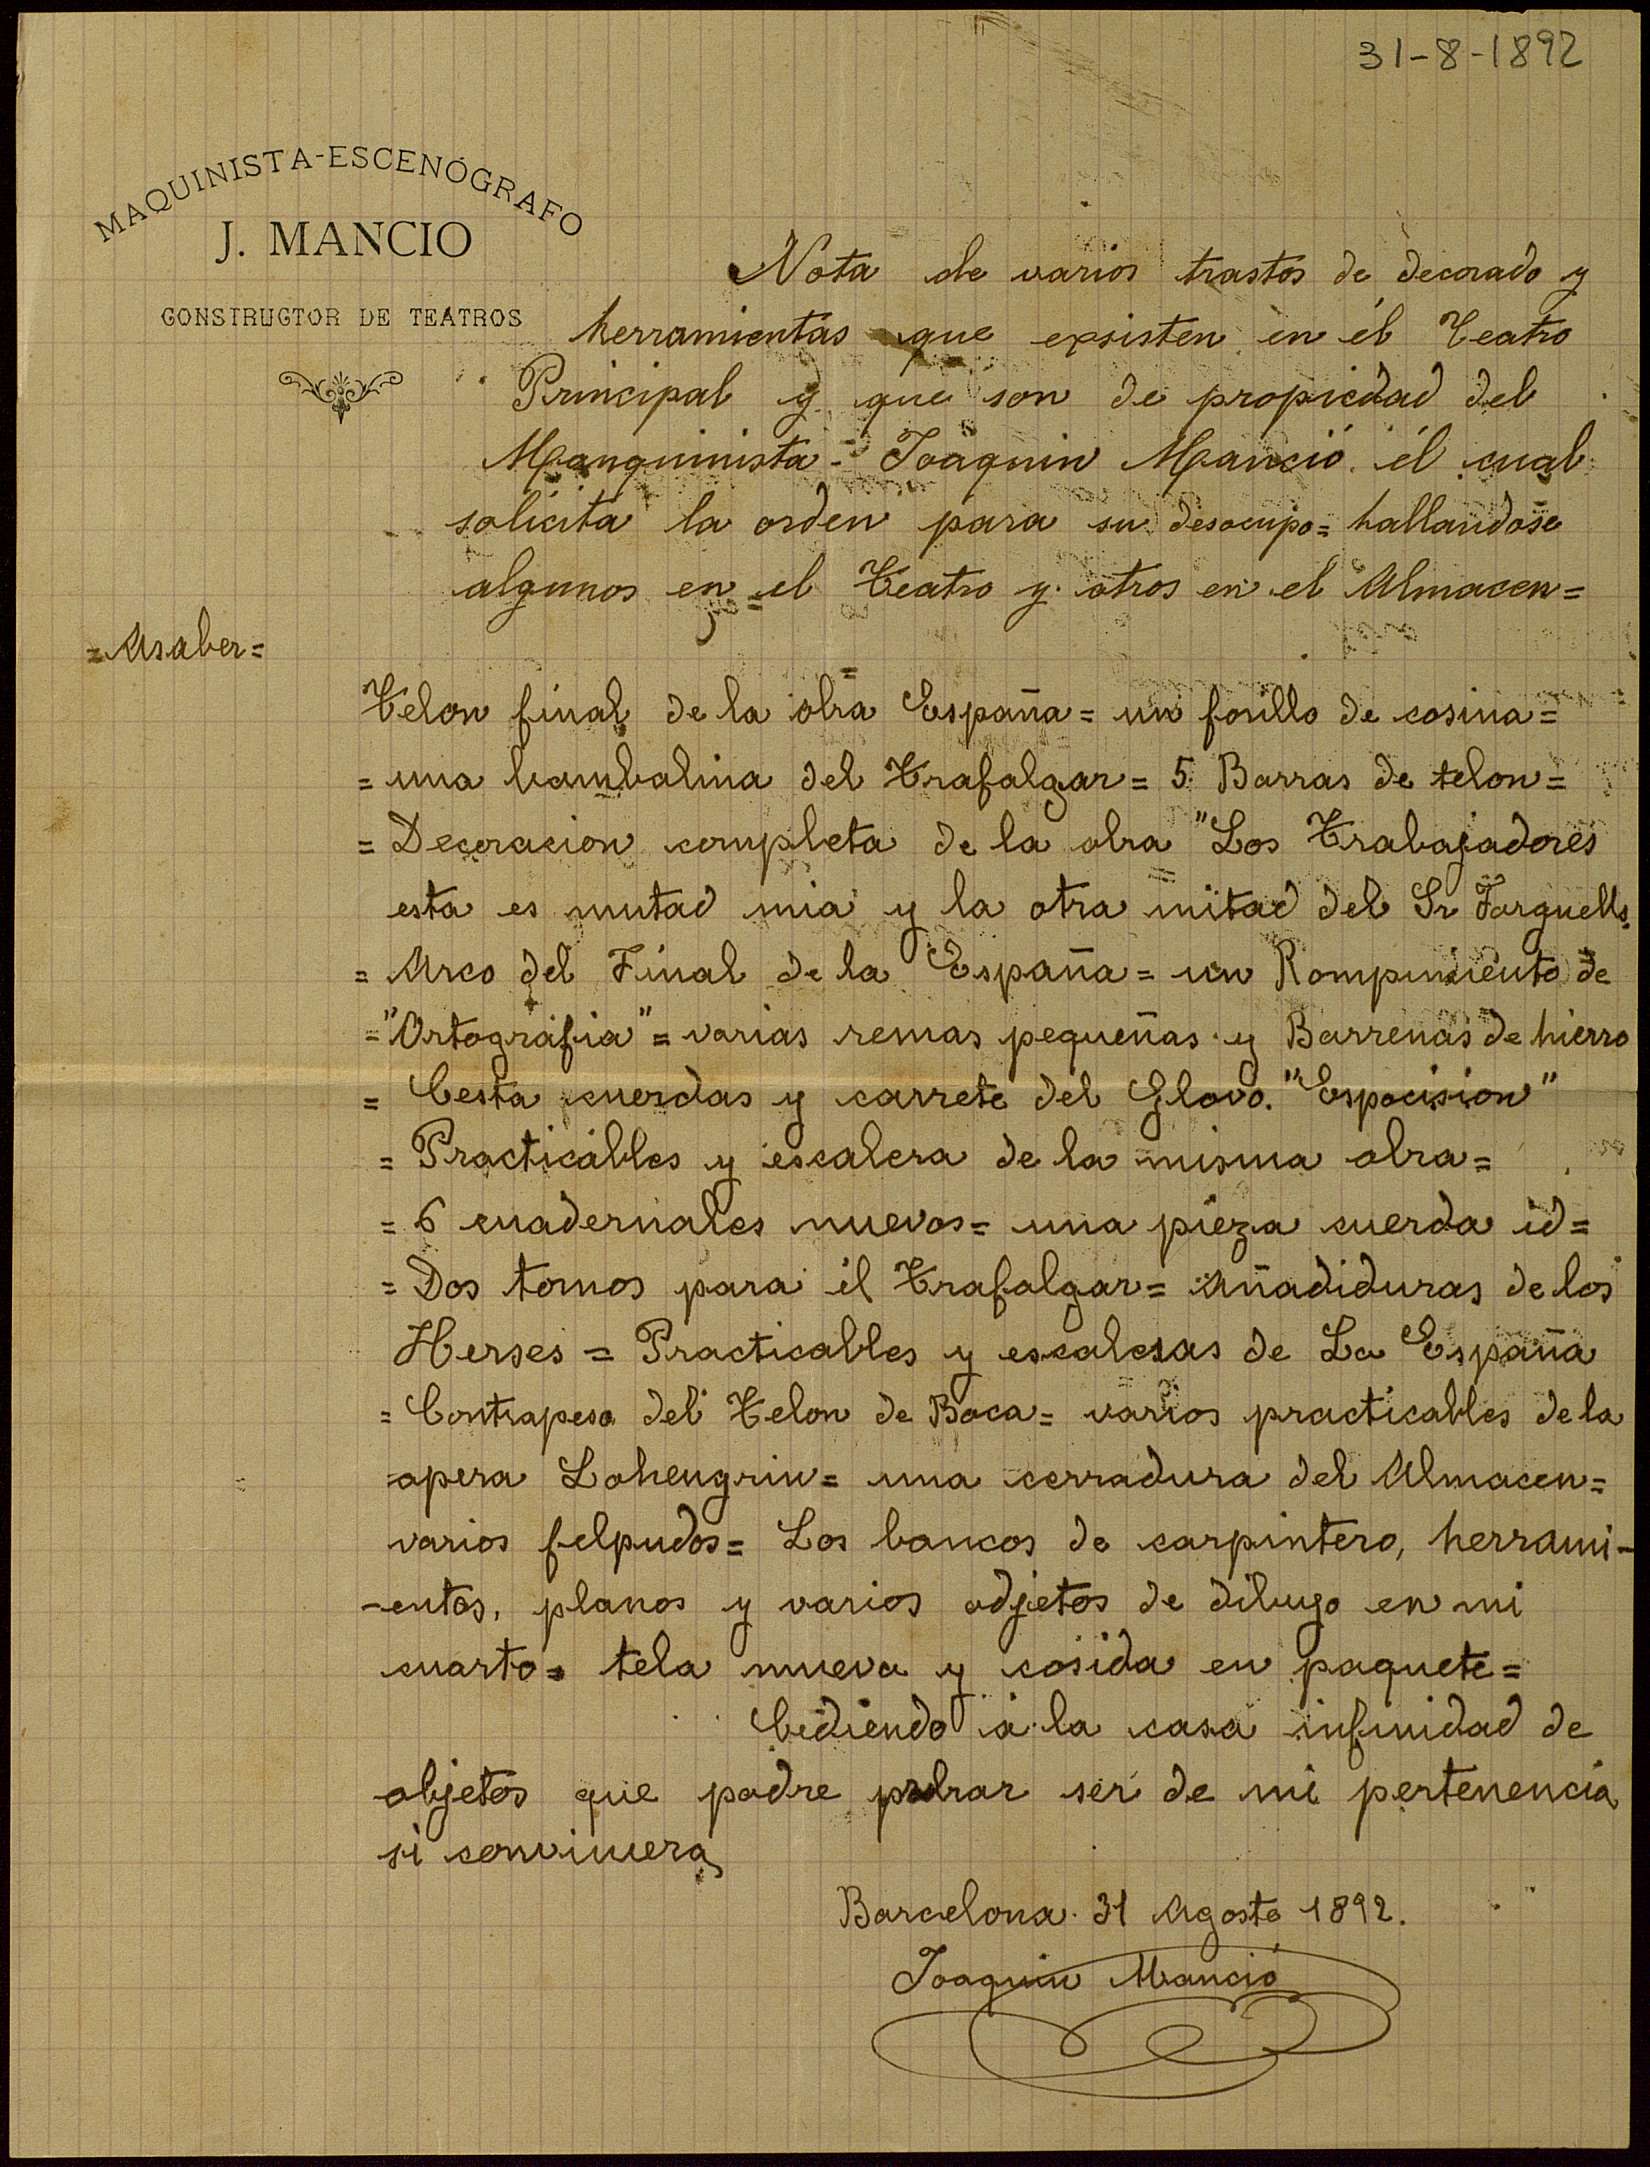 31-8-1892
MAQUINISTA-ESCENÓGRAFO
J. MANCIO
CONSTRUCTOR DE TEATROS
Nota de varios trastos de decorado y
herramientas que exsisten en él Teatro
Principal y que son de propiedad del
Manquinista - Joaquin Manció él cual
solicita la orden para su desocupo = hallandose
algunos en el Teatro y otros en el Almacen =
= Asaber =
Telon final de la obra España = un forillo de cosina =
= una bambalina del Trafalgar = 5 Barras de telon =
= Decoracion completa de la obra "Los Trabajadores
esta es mutad mia y la otra mitad del Sr
= Arco del Final de la España = un Rompimiento de
= "Ortografia" = varias remas pequeñas y Barrenas de hierro
= Cesta cuerdas y carrete del Glovo. "Esposision"
= Practicables y escalera de la misma obra =
= 6 cuadernales nuevos = una pieza cuerda id =
= Dos tornos para él Trafalgar = Añadiduras de los
Herses = Practicables y escaleras de La España
= Contrapeso del Telon de Boca = varios practicables de la
opera Lohengrin = una cerradura del Almacen =
varios felpudos = Los bancos de carpintero, herrami-
-entas, planos y varios odjetos de dibugo en mi
cuarto = tela nueva y cosida en paquete =
Cediendo á la casa infinidad de
objetos que podre ser de mi pertenencia
si conviniera
Barcelona 31 Agosto 1892.
Joaquin Manció